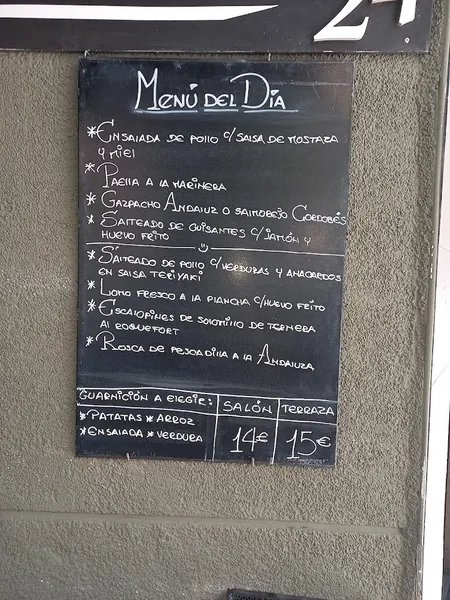 24
MENÚ DEL DÍA
* ENSALADA DE POLLO C/ SALSA DE MOSTAZA
Y MIEL
* PAELLA A LA MARINERA
* GAZPACHO ANDALUZ O SALMOREJO CORDOBÉS
* SALTEADO DE GUISANTES C/ JAMÓN Y
HUEVO FRITO
* SALTEADO DE POLLO C/VERDURAS Y ANACARDOS
EN SALSA TERIYAKI
* LOMO FRESCO A LA PLANCHA C/HUEVO FRITO
* ESCALOPINES DE SOLOMILLO DE TERNERA
AL ROQUEFORT
* ROSCA DE PESCADILLA A LA ANDALUZA
GUARNICIÓN A ELEGIR: SALÓN TERRAZA
* PATATAS * ARROZ
* ENSALADA * VERDURA 14€ 15€